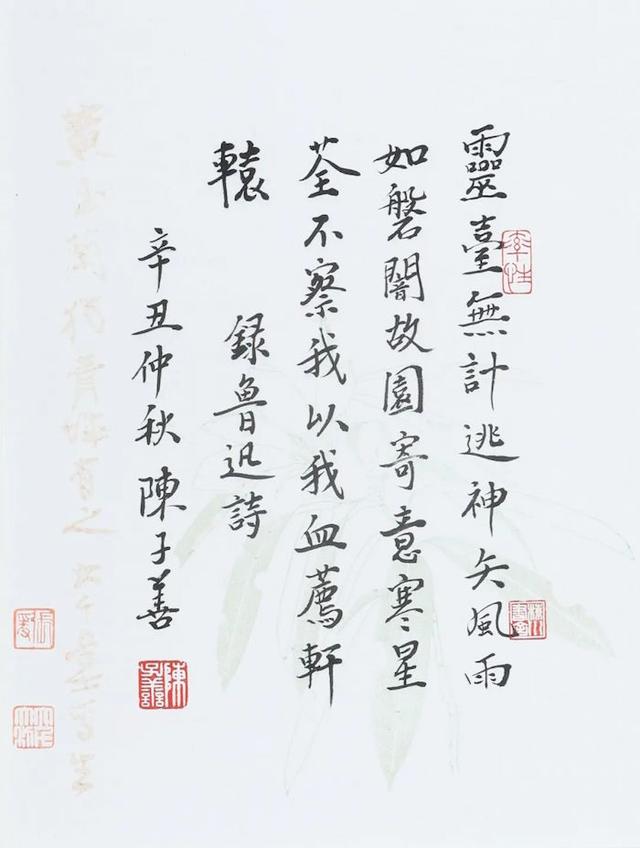 靈臺無計逃神矢風雨
如磐闇故園寄意寒星
荃不察我以我血薦軒
轅 録魯迅詩
辛丑仲秋 陳子善
率性